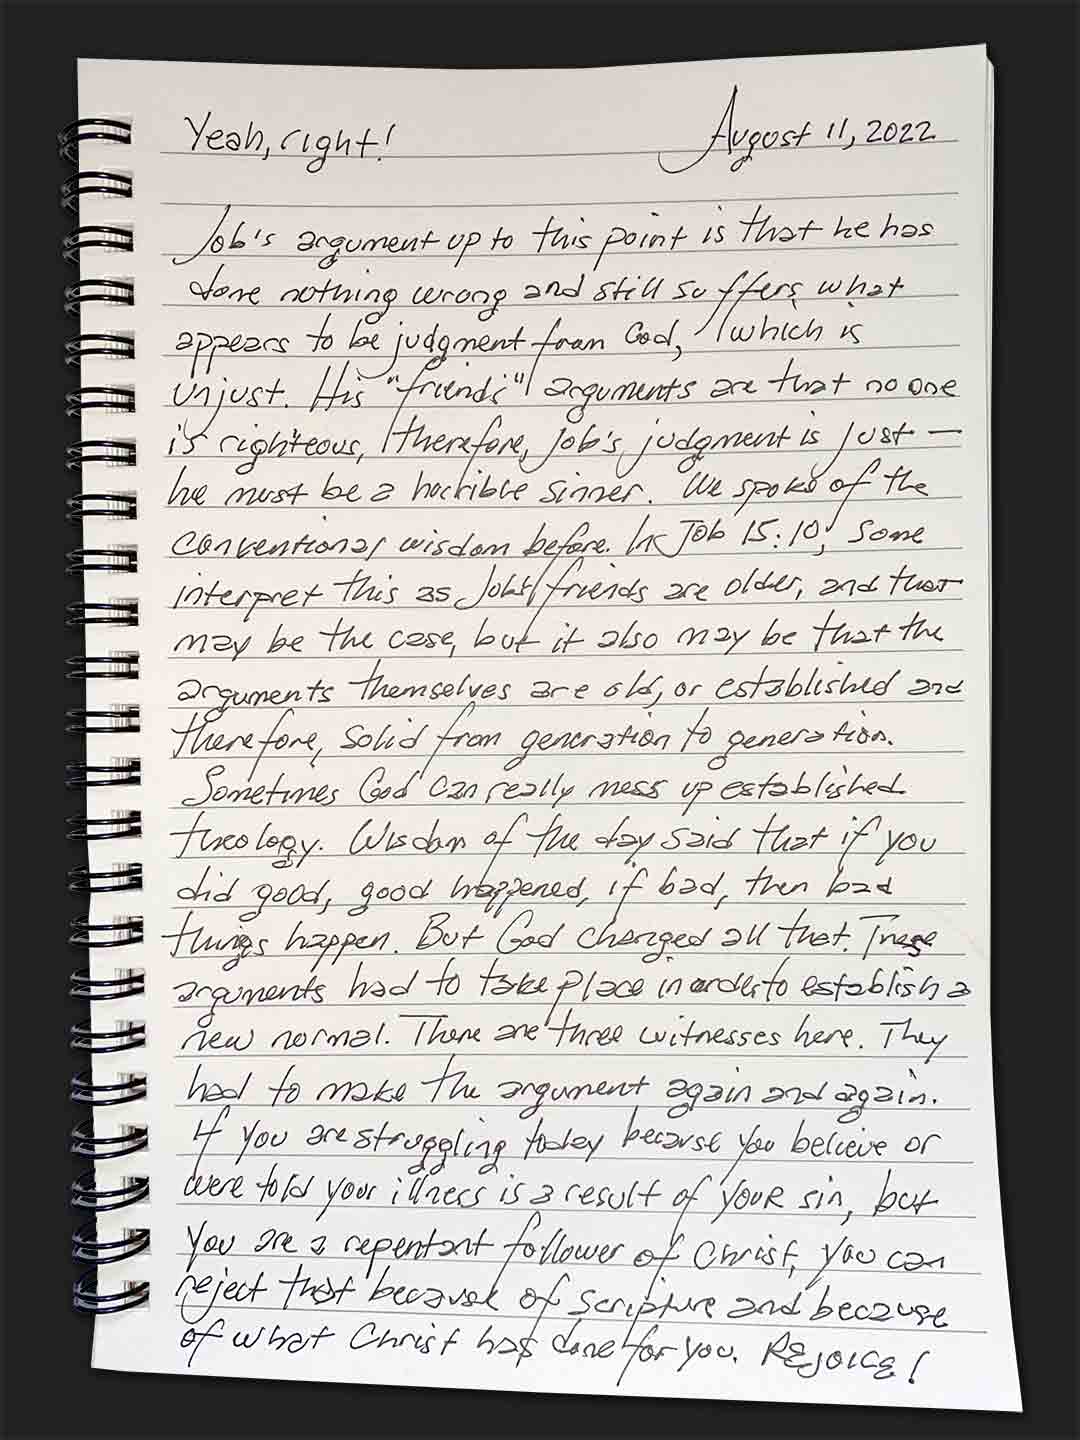 Yeah, right!
August 11, 2022
Job's argument up to this point is that he has
done nothing wrong and still suffers what
appears to be judgment from God, which is
unjust. His "friends'" arguments are that no one
is righteous, therefore, Job's judgment is just —
he must be a horrible sinner. We spoke of the
conventional wisdom before. In Job 15:10, some
interpret this as Job's friends are older, and that
may be the case, but it also may be that the
arguments themselves are old, or established and
therefore, solid from generation to generation.
Sometimes God can really mess up established
theology. Wisdom of the day said that if you
did good, good happened, if bad, then bad
things happen. But God changed all that. These
arguments had to take place in order to establish a
new normal. There are three witnesses here. They
had to make the argument again and again.
If you are struggling today because you believe or
were told your illness is a result of your sin, but
you are a repentant follower of Christ, you can
reject that because of Scripture and because
of what Christ has done for you. REJOICE!